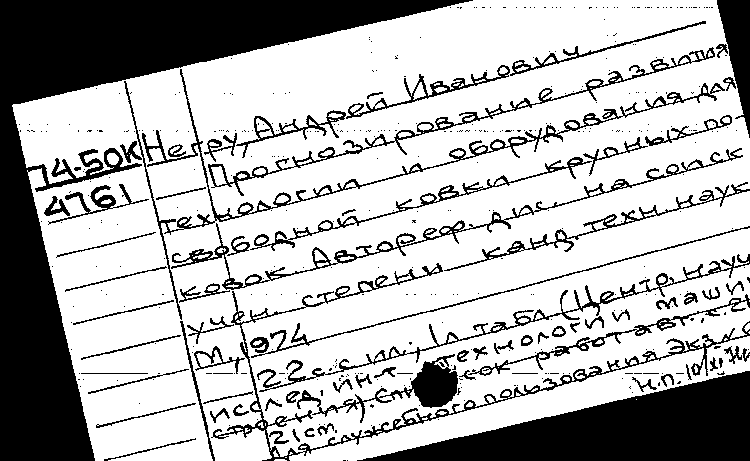 74-50К
4761
Негру, Андрей Иванович
Прогнозирование развития
технологии и оборудования для
свободной ковки крупных по-
ковок. Автореф. дис. на соиск
учен. степени канд. техн. наук
М., 1974
22 с. с ил., 1 л табл (Центр. науч.
исслед. ин-т технологии и маши
строения). Список работ авт.: с. 21
21 см
Для служебного пользования Экз. №
Н.П.